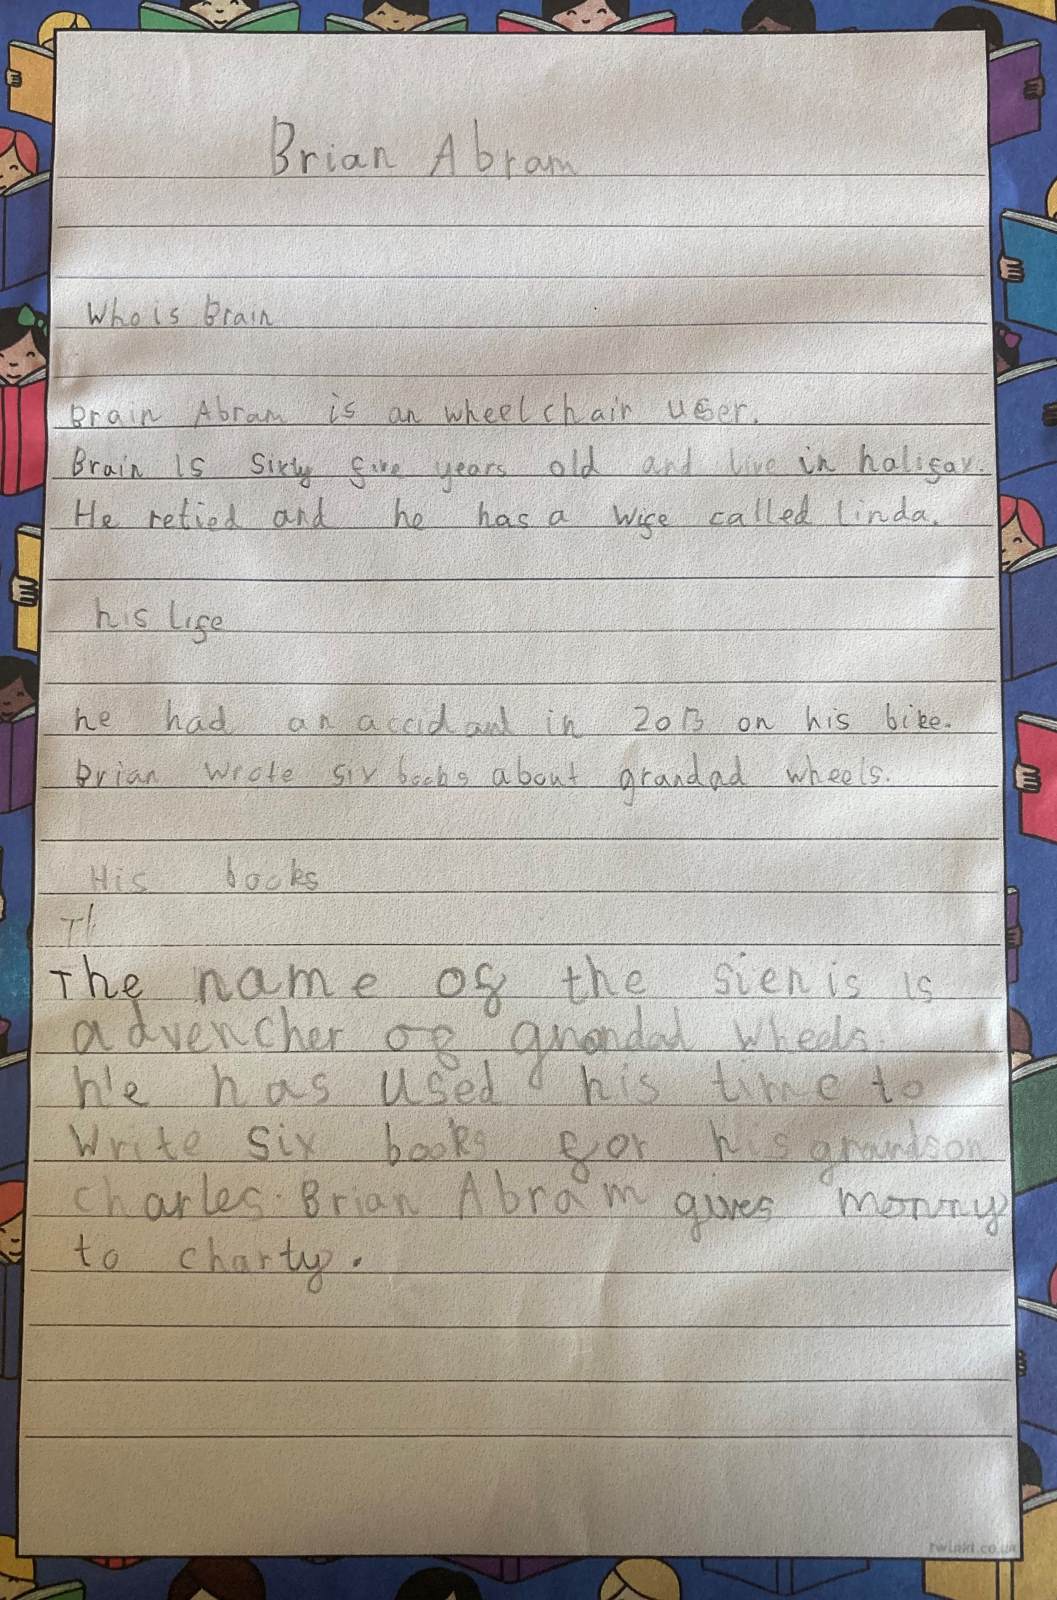 Brian Abram
Who is Brain
Brain Abram is an wheelchair user.
Brain is sixty five years old and live in halifax.
He retied and he has a wife called linda.
his life
he had an accidant in 2013 on his bike.
Brian wrote six books about grandad wheels.
His books
Th
The name of the sienis is
advencher of grandad wheels.
he has used his time to
write six books for his grandson
charles. Brian Abram gives monny
to charty.
twinkl.co.uk